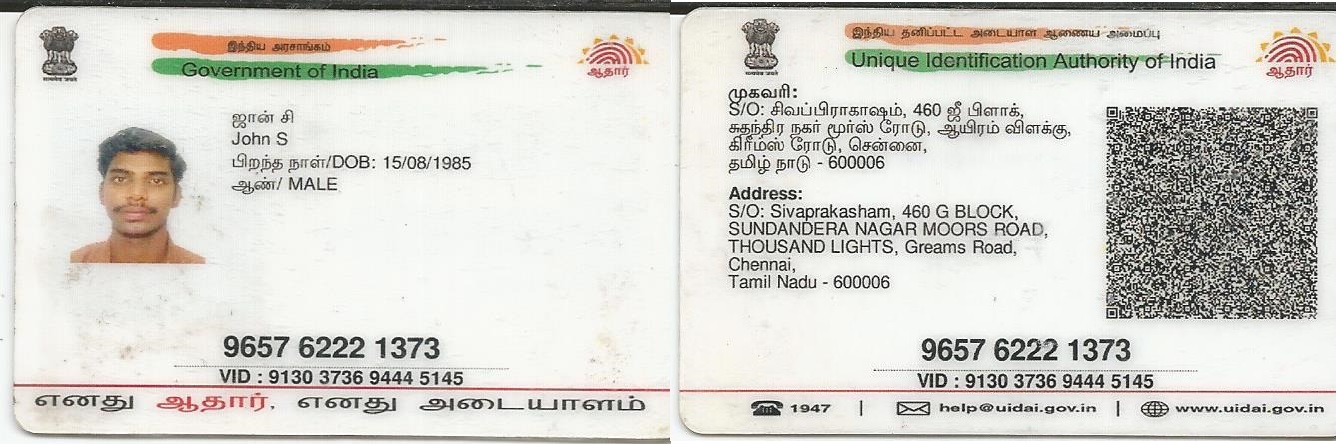 இந்திய அரசாங்கம்
Government of India
ஆதார்
ஜான் சி
John S
பிறந்த நாள்/DOB: 15/08/1985
ஆண்/ MALE
9657 6222 1373
VID : 9130 3736 9444 5145
எனது ஆதார், எனது அடையாளம்
இந்திய தனிப்பட்ட அடையாள ஆணைய அமைப்பு
Unique Identification Authority of India
ஆதார்
முகவரி:
S/O: சிவப்பிராகாஷம், 460 ஜீ பிளாக்,
சுதந்திர நகர் மூர்ஸ் ரோடு, ஆயிரம் விளக்கு,
கிரீம்ஸ் ரோடு, சென்னை,
தமிழ் நாடு - 600006
Address:
S/O: Sivaprakasham, 460 G BLOCK,
SUNDANDERA NAGAR MOORS ROAD,
THOUSAND LIGHTS, Greams Road,
Chennai,
Tamil Nadu - 600006
9657 6222 1373
VID : 9130 3736 9444 5145
1947 | help@uidai.gov.in | www.uidai.gov.in